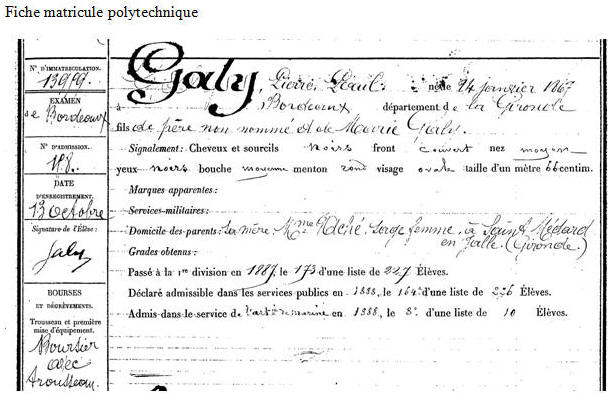 Fiche matricule polytechnique
N° D'IMMATRICULATION.
13919.
EXAMEN
de Bordeaux
N° D'ADMISSION.
158.
DATE
D'ENREGISTREMENT.
13 octobre
Signature de l'Élève:
Galy
BOURSES
ET DÉGRÈVEMENTS.
Trousseau et première
mise d'équipement.
Boursier
avec
trousseau.
Galy, Pierre Paul né le 24 janvier 1867
à Bordeaux département de la Gironde
fils de père non nommé et de Marie Galy.
Signalement: Cheveux et sourcils noirs front couvert nez moyen
yeux noirs bouche moyenne menton rond visage ovale taille d'un mètre 66 centim.
Marques apparentes:
Services militaires:
Domicile des parents: Sa mère Mme sage femme, à Saint Médard
en Jalle. (Gironde.)
Grades obtenus:
Passé à la 1re division en 1887, le 173 d'une liste de 227 Élèves.
Déclaré admissible dans les services publics en 1888, le 164e d'une liste de 236 Élèves.
Admis dans le service de l'artie de marine en 1888, le 8e d'une liste de 10 Élèves.